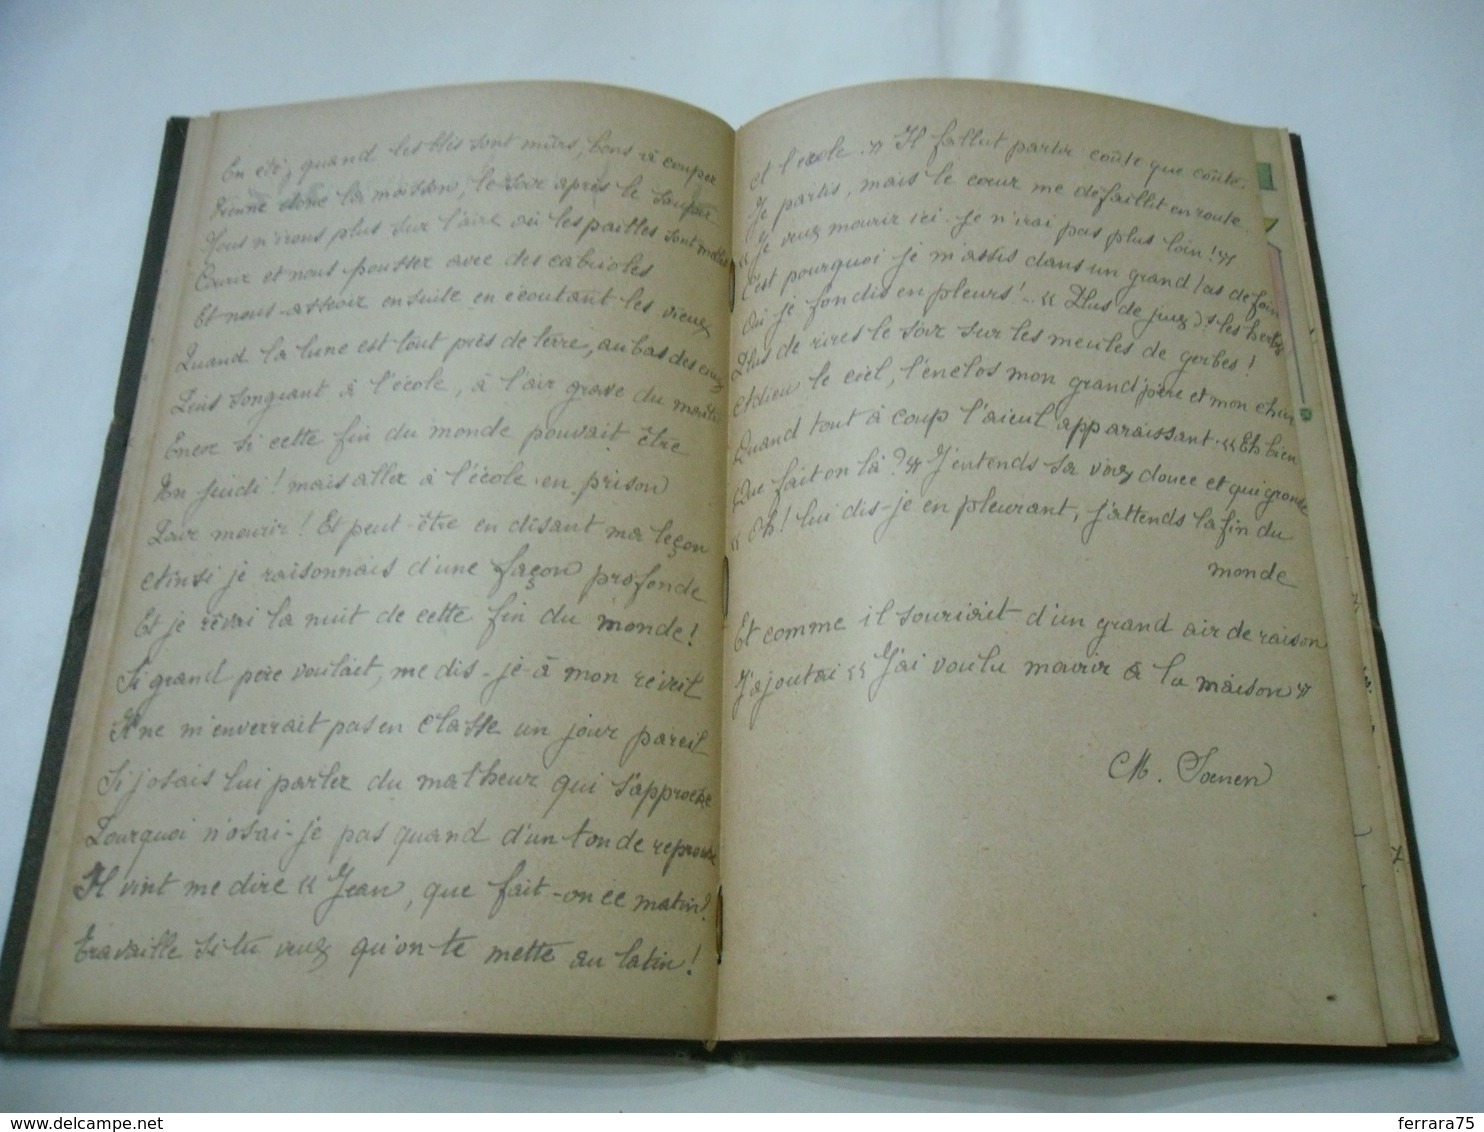 En été, quand les blés sont mûrs, bons à couper
la maison, le soir après le souper
Nous n'irons plus sur l'aire où les pailles sont molles
Courir et nous pousser avec des cabrioles
Et nous asseoir ensuite en écoutant les vieux
Quand la lune est tout près de terre, au bas des cieux
Puis songeant à l'école, à l'air grave du maître
Encor si cette fin du monde pouvait être
Un jeudi! mais aller à l'école en prison
Pour mourir! Et peut-être en disant ma leçon
Ainsi je raisonnais d'une façon profonde
Et je rêvai la nuit de cette fin du monde!
Si grand père voulait, me dis-je à mon réveil
Il ne m'enverrait pas en classe un jour pareil
Si j'osais lui parler du malheur qui s'approche
Pourquoi n'osai-je pas quand d'un ton de reproche
Il vint me dire « Jean, que fait-on ce matin?
Travaille si tu veux qu'on te mette au latin!
et l'école. » Il fallut partir coûte que coûte.
Je partis, mais le cœur me défaillit en route.
« Je veux mourir ici. Je n'irai pas plus loin! »
C'est pourquoi je m'assis dans un grand tas de foin
Où je fondis en pleurs!.. « Plus de jeux ds les herbes
Plus de rires le soir sur les meules de gerbes!
Adieu le ciel, l'enclos mon grand'père et mon chien
Quand tout à coup l'aïeul apparaissant « Eh bien
Que fait on là? » J'entends sa voix douce et qui gronde
« Oh! lui dis-je en pleurant, j'attends la fin du
monde
Et comme il souriait d'un grand air de raison
J'ajoutai « J'ai voulu mourir à la maison »
ferrara75